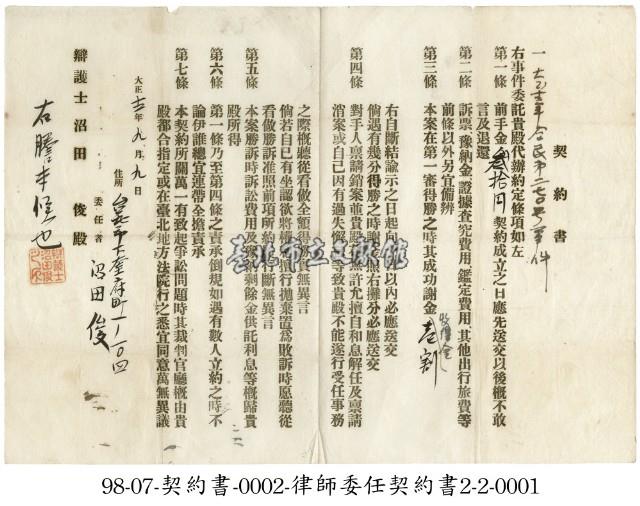 契約書
一 大正十二年合民第二七〇五號事件
右事件委託貴殿代辦約定條項如左
第一條 前手金 參拾円 契約成立之日應先送交以後概不敢
言及退還
第二條 訴票、豫納金、證據查究費用、鑑定費用、其他出行旅費等
前條以外另宜備辨
第三條 本案在第一審得勝之時其成功謝金 壱割
右自斷結諭示之日起向 以內必應送交
倘遇有幾分得勝之時 照右攤分必應送交
第四條 對手人稟請銷案並貴殿 無許尤擅自和息解任及稟請
消案或自己因有過失懈怠 等致貴殿不能遂行受任事務
之際概聽從看做全額得勝 無異言
倘若自已有坐認欲將權利擅行拋棄置為敗訴時愿聽從
看做勝訴准照前項所約 行斷無異言
第五條 本案勝訴時訴訟費用及 納剩餘金供託利息等概歸貴
殿所得
第六條 第一條乃至第四條之責承倒規如遇有數人立約之時不
論伊誰總宜連帶全擔責承
第七條 本契約所關萬一有致起爭訟問題時其裁判官廳概由貴
殿都合指定或在臺北地方法院行之悉宜同意萬無異議
大正十二年九月九日
住所 台北市下奎府町一ノ一〇四
委任者 沼田俊
辯護士 沼田 俊 殿
右謄本候也
臺北市立文獻館
98-07-契約書-0002-律師委任契約書2-2-0001